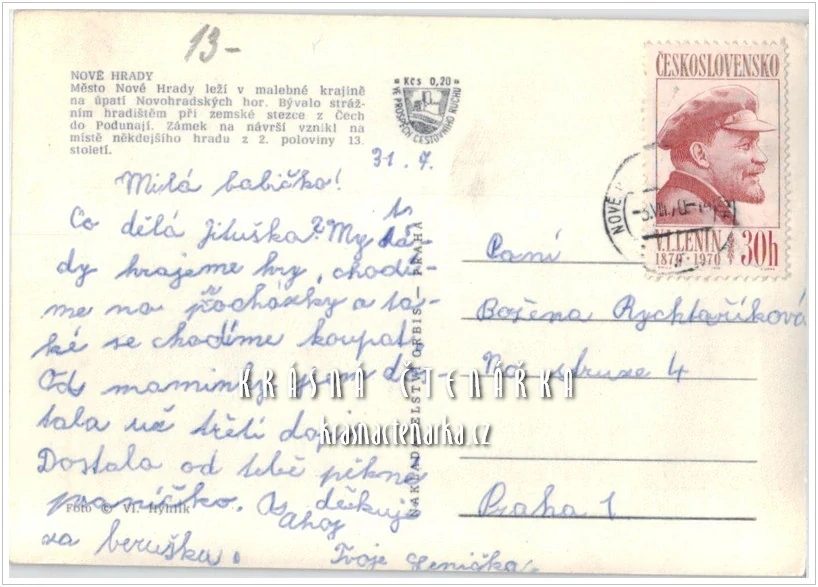 13-
NOVÉ HRADY
Město Nové Hrady leží v malebné krajině
na úpatí Novohradských hor. Bývalo stráž-
ním hradištěm při zemské stezce z Čech
do Podunají. Zámek na návrší vznikl na
místě někdejšího hradu z 2. poloviny 13.
století.
Kčs 0,20
VE PROSPĚCH CESTOVNÍHO RUCHU
ČESKOSLOVENSKO
V.I.LENIN 30h
1870-1970
NOVÉ
31. 7.
Milá babičko!
Co dělá Jituška? My ta-
dy hrajeme hry, chodí-
me na procházky a ta-
ké se chodíme koupat.
Od maminky jsem do-
tala už třetí dopis.
Dostala od tebe pěkné
psaníčko. Os děkuje
za berušku.
Ahoj
Tvoje Lenička.
NAKLADATELSTVÍ ORBIS — PRAHA
Paní
Božena Rychtaříková
Na struze 4
Praha 1
Foto © Vl. Hyhlík
KRÁSNÁ ČTENÁŘKA
krasnactenarka.cz